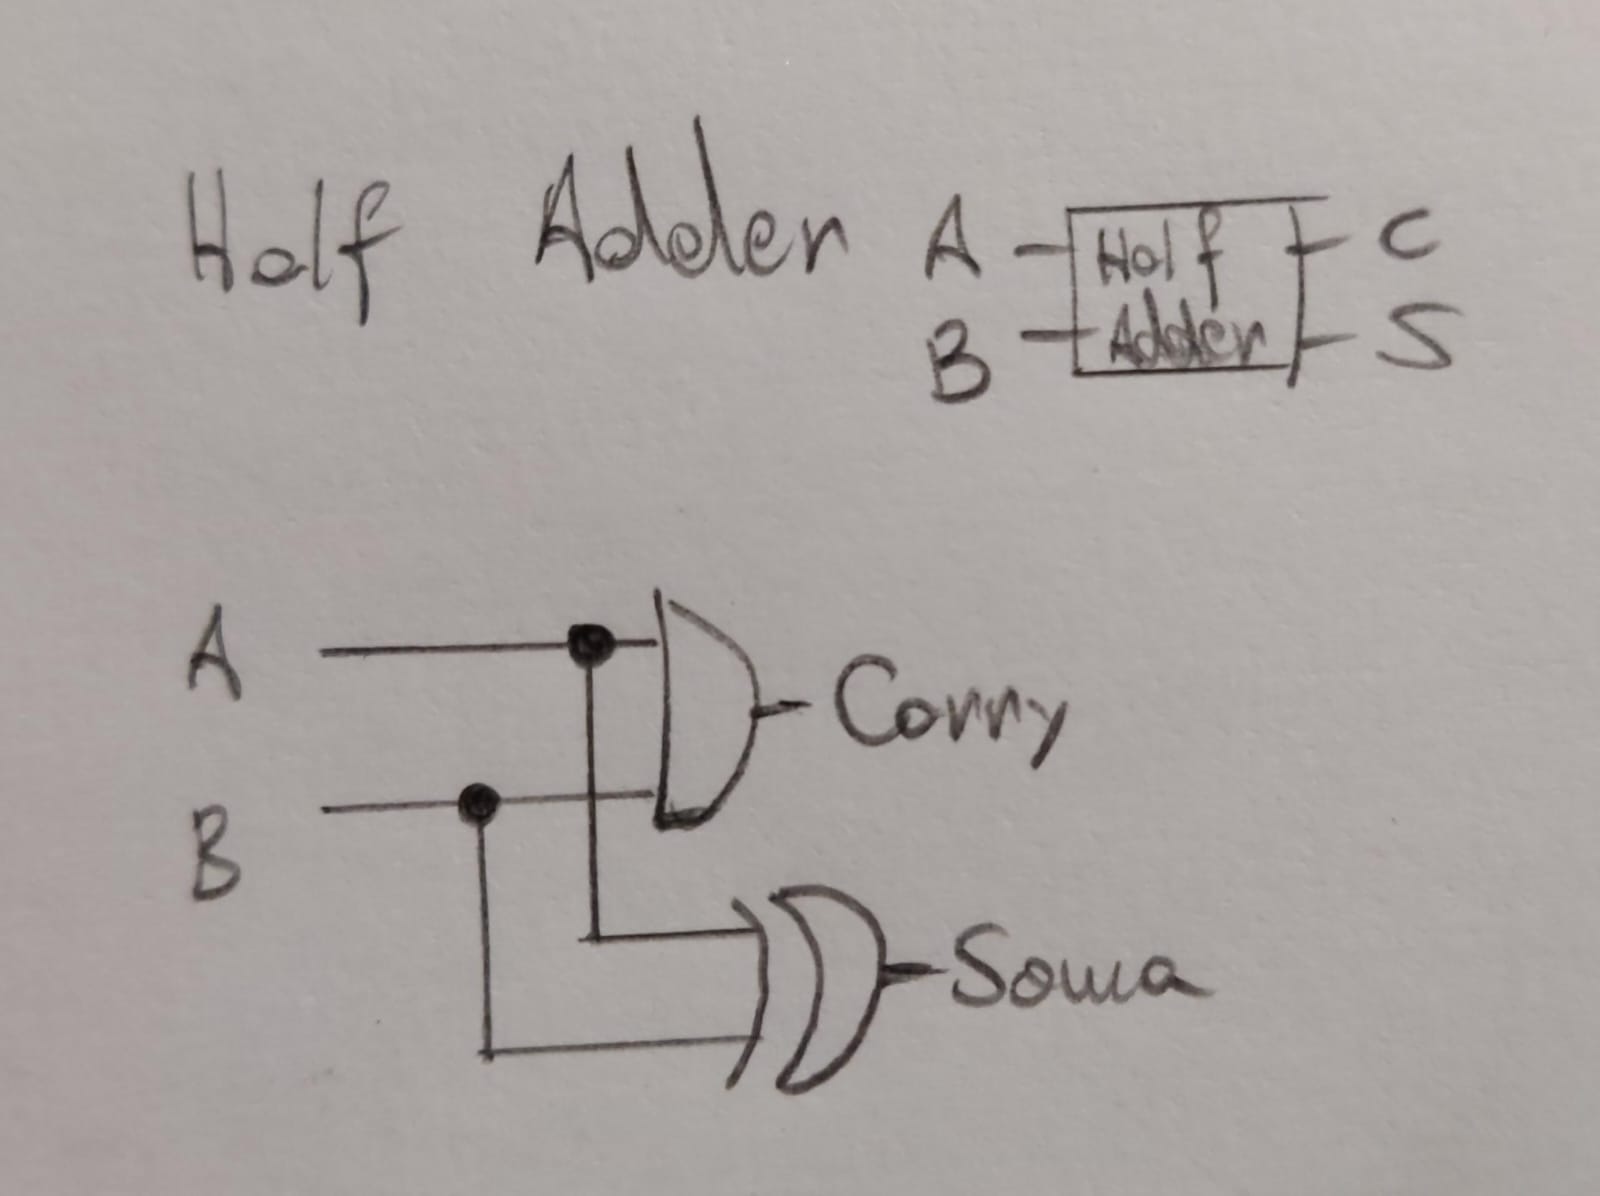 Half Adder
A Half C
B Adder S
A
Carry
B
Soma